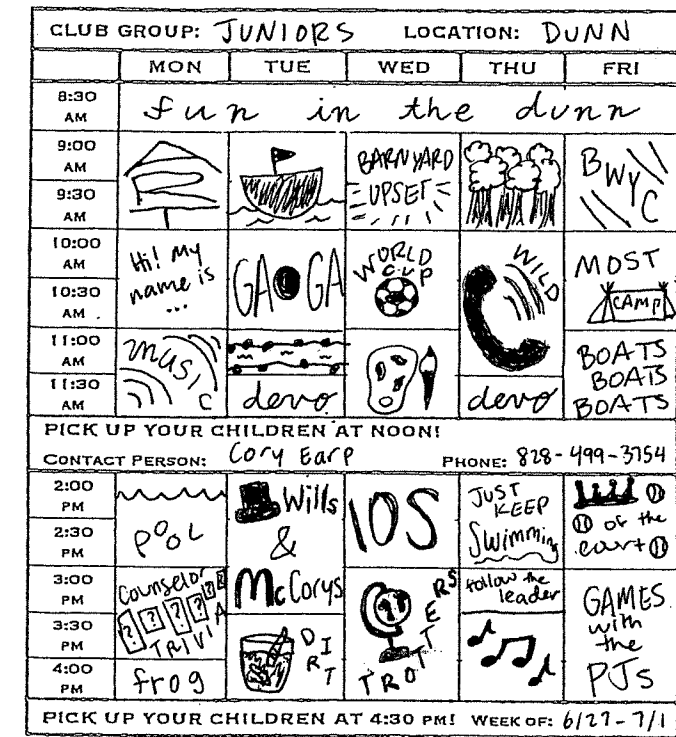 CLUB GROUP: JUNIORS LOCATION: DUNN
MON TUE WED THU FRI
8:30 AM fun in the dunn
9:00 AM
9:30 AM
BARNYARD UPSET
BWYC
10:00 AM
10:30 AM
Hi! My name is ...
GA GA
WORLD CUP
WILD
MOST CAMP
11:00 AM
11:30 AM
MUSIC
devo
devo
BOATS
BOATS
BOATS
PICK UP YOUR CHILDREN AT NOON!
CONTACT PERSON: Cory Earp PHONE: 828-499-3754
2:00 PM
2:30 PM
POOL
Wills & McCorys
IOS
JUST KEEP Swimming
of the court
3:00 PM
3:30 PM
Counselor
? ? ? ? ? ?
TRIVIA
DIRT
TROTTERS
follow the leader
GAMES with the PJs
4:00 PM frog
PICK UP YOUR CHILDREN AT 4:30 PM! WEEK OF: 6/27-7/1